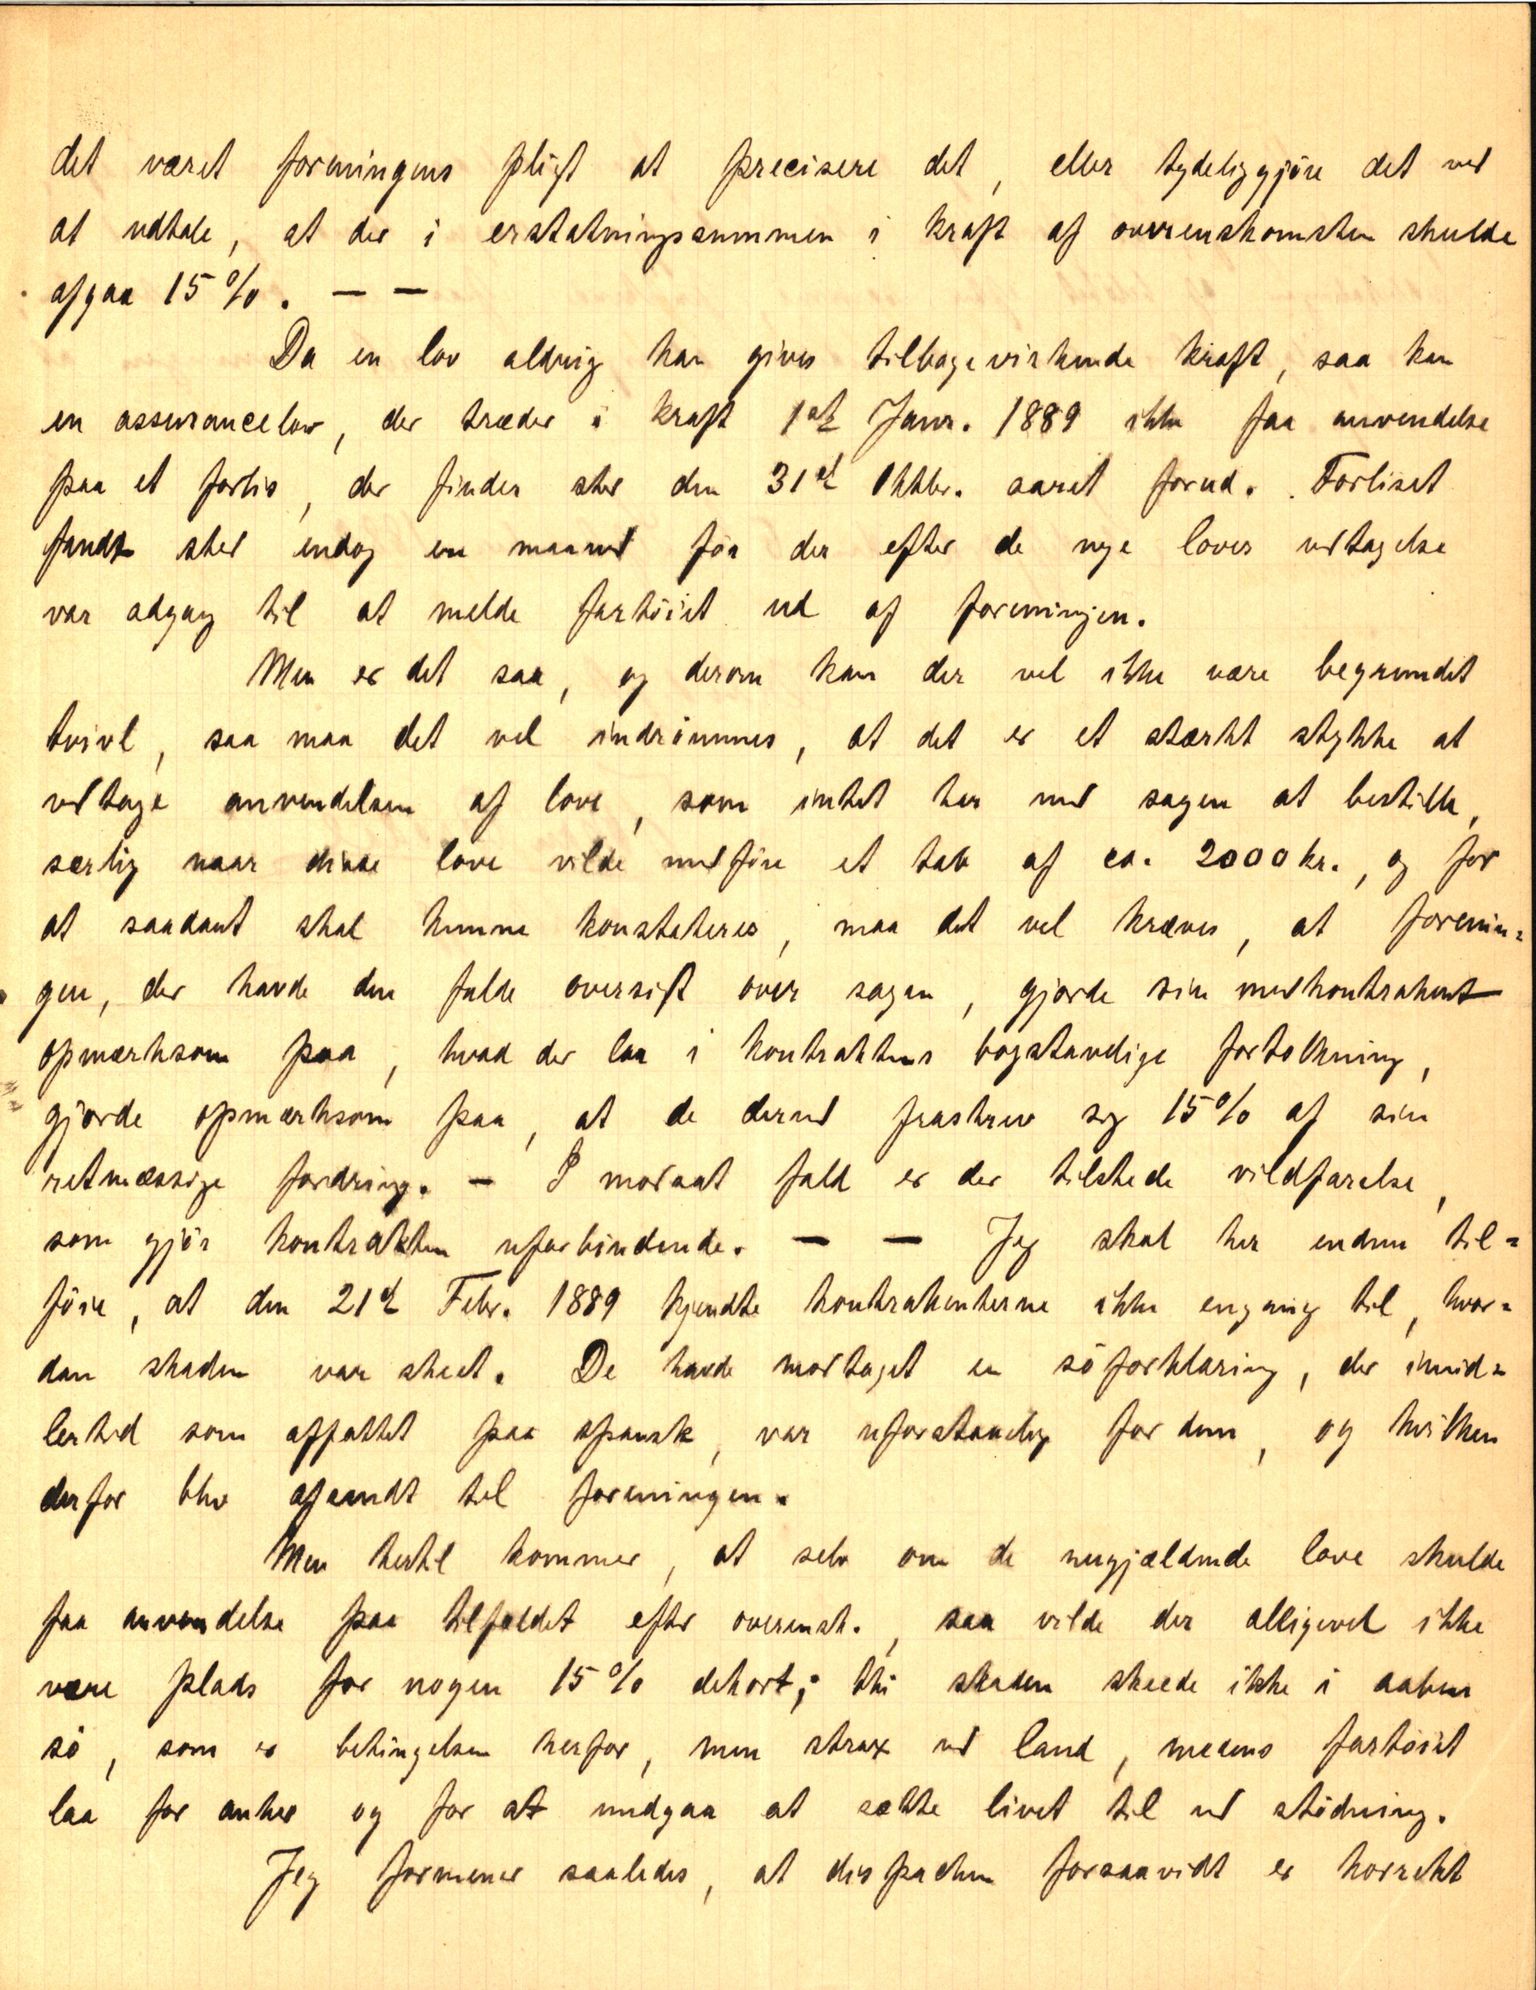 det været foreningens pligt at precisere det, eller tydeliggjöre det ved
at udtale, at der i erstatningssummen i kraft af overenskomsten skulde
afgaa 15 %. — —
Da en lov aldrig kan gives tilbagevirkende kraft, saa kan
en assurancelov, der træder i kraft 1st Janr. 1889 ikke faa anvendelse
paa et forlis, der finder sted den 31st Oktbr. aaret forud. Forliset
fandt sted endog en maaned för der efter de nye loves vedtagelse
var adgang til at melde fartöiet ud af foreningen.
Men er det saa, og derom kan der vel ikke være begrundet
tvivl, saa maa det vel indrömmes, at det er et stærkt stykke at
vedtage anvendelsen af love, som intet har med sagen at bestille,
særlig naar disse love vilde medföre et tab af ca. 2000 kr., og for
at saadant skal kunne konstateres, maa det vel kræves, at forenin=
gen, der havde den fulde oversigt over sagen, gjorde sin medkontrahent
opmærksom paa, hvad der laa i kontraktens bogstavelige fortolkning,
gjorde opmærksom paa, at de derved fraskrev sig 15% af sin
retmæssige fordring. — I modsat fald er der tilstede vildfarelse,
som gjör kontrakten uforbindende. — — Jeg skal her endnu til=
föie, at den 21st Febr. 1889 kjendte kontrahenterne ikke engang til, hvor=
dan skaden var skeet. De havde modtaget en söforklaring, der imid=
lertid som affattet paa spansk, var uforstaaelig for dem, og hvilken
derfor blev afsendt til foreningen.
Men hertil kommer, at selv om de nugjældende love skulde
faa anvendelse paa tilfældet efter overensk., saa vilde der alligevel ikke
være plads for nogen 15 % dekort; thi skaden skeede ikke i aaben
sö, som er betingelsen herfor, men strax ved land, medens fartöiet
laa for anker og for at undgaa at sætte livet til ved stödning.
Jeg formener saaledes, at dispachen forsaavidt er korrekt